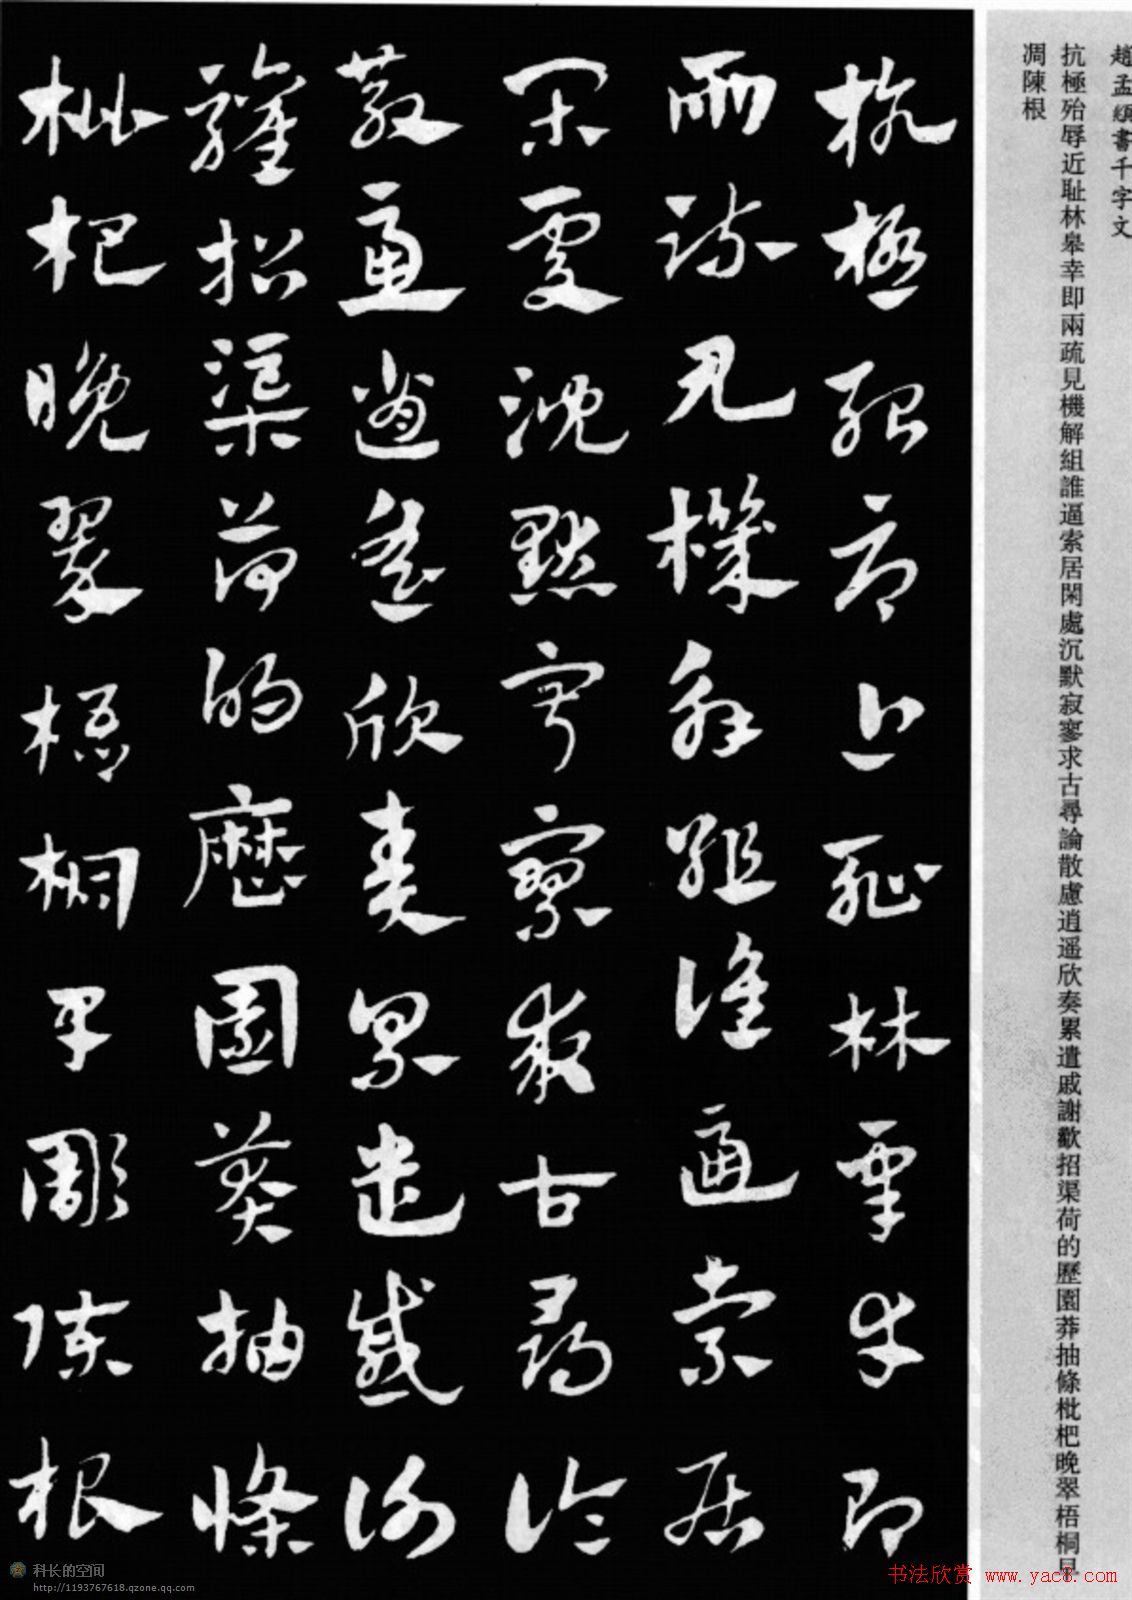 趙孟頫書千字文
抗極殆辱近耻林皋幸即兩疏見機解組誰逼索居閑處沉默寂寥求古尋論散慮逍遥欣奏累遣戚謝歡招渠荷的歷園莽抽條枇杷晚翠梧桐早
凋陳根
抗極殆辱近耻林皋幸即
兩疏見機解組誰逼索居
閑處沉默寂寥求古尋論
散慮逍遥欣奏累遣慼謝
歡招渠荷的歷園莽抽條
枇杷晚翠梧桐早彫陳根
科长的空间
http://1193767618.qzone.qq.com
书法欣赏 www.yac8.com